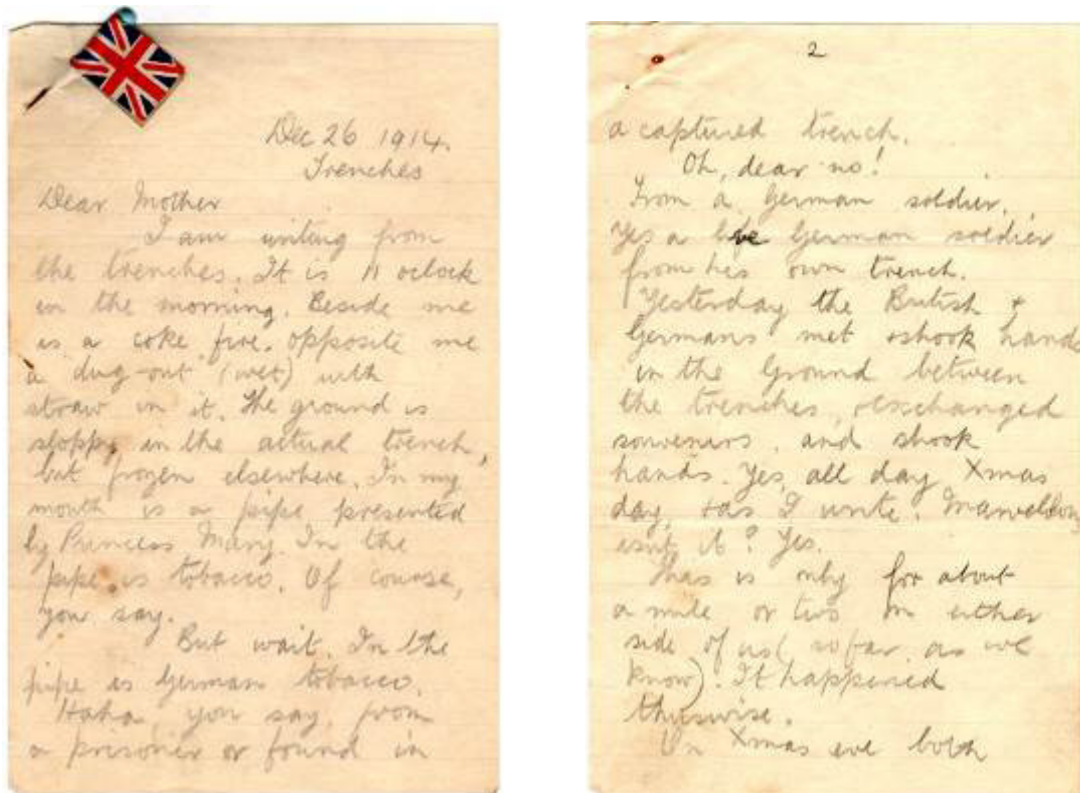 Dec 26 1914.
Trenches
Dear Mother
I am writing from
the trenches. It is 11 oclock
in the morning. Beside me
is a coke fire, opposite me
a dug-out (wet) with
straw in it. The ground is
sloppy in the actual trench,
but frozen elsewhere. In my
mouth is a pipe presented
by Princess Mary. In the
pipe is tobacco. Of course,
you say.
But wait. In the
pipe is German tobacco.
Haha, you say, from
a prisoner or found in
2
a captured trench.
Oh, dear no!
From a German soldier.
Yes a live German soldier
from his own trench.
Yesterday the British &
Germans met & shook hands
in the Ground between
the trenches, & exchanged
souvenirs, and shook
hands. Yes, all day Xmas
day, & as I write. Marvellous
isn't it? Yes.
This is only for about
a mile or two on either
side of us (so far as we
know). It happened
thuswise.
On Xmas eve both